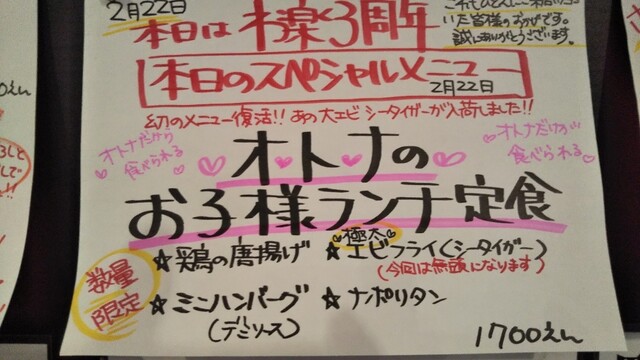 2月22日
本日は 木楽 3周年
いた皆様のおかげです。
誠にありがとうございます。
本日のスペシャルメニュー
2月22日
幻のメニュー復活!! あの大エビ シータイガーが入荷しました!!
オトナだから
食べられる
オトナだけが
食べられる
オ・ト・ナの
お子様ランチ定食
数量
限定
☆鶏の唐揚げ
☆極太エビフライ(シータイガー)
(今回は無頭になります)
☆ミニハンバーグ
(デミソース)
☆ナポリタン
1700えん